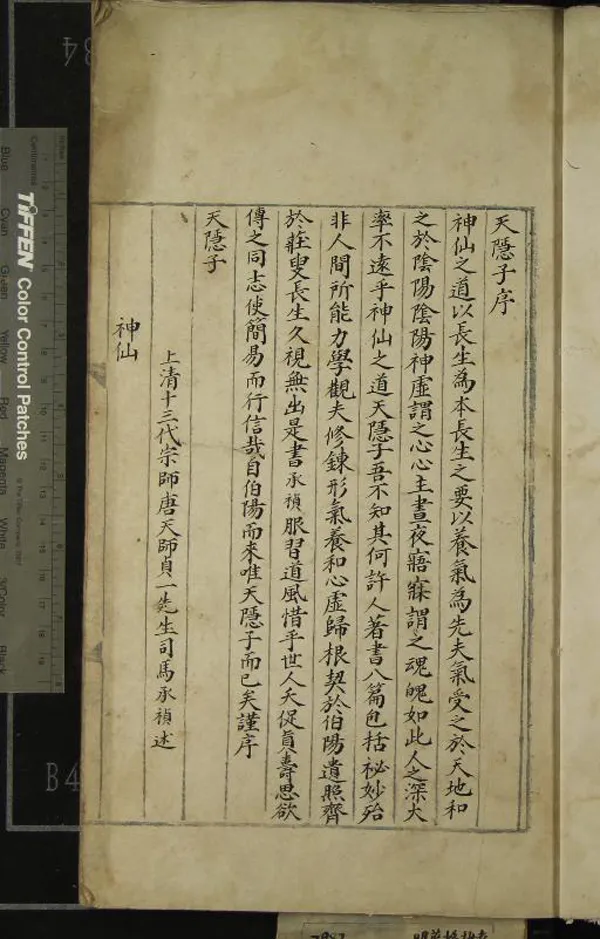 天隱子序
神仙之道以長生為本長生之要以養氣為先夫氣受之於天地和
之於陰陽陰陽神虛謂之心心主晝夜寤寐謂之魂魄如此人之深大
率不遠乎神仙之道天隱子吾不知其何許人著書八篇包括祕妙殆
非人間所能力學觀夫修鍊形氣養和心虛歸根契於伯陽遺照齊
於莊叟長生久視無出是書承禎服習道風惜乎世人夭促真壽思欲
傳之同志使簡易而行信哉自伯陽而來唯天隱子而已矣謹序
天隱子
上清十三代宗師唐天師貞一先生司馬承禎述
神仙
TIFFEN Color Control Patches
Centimetres
Inches
Blue Cyan Green Yellow Red Magenta White 3/Color Black
B4